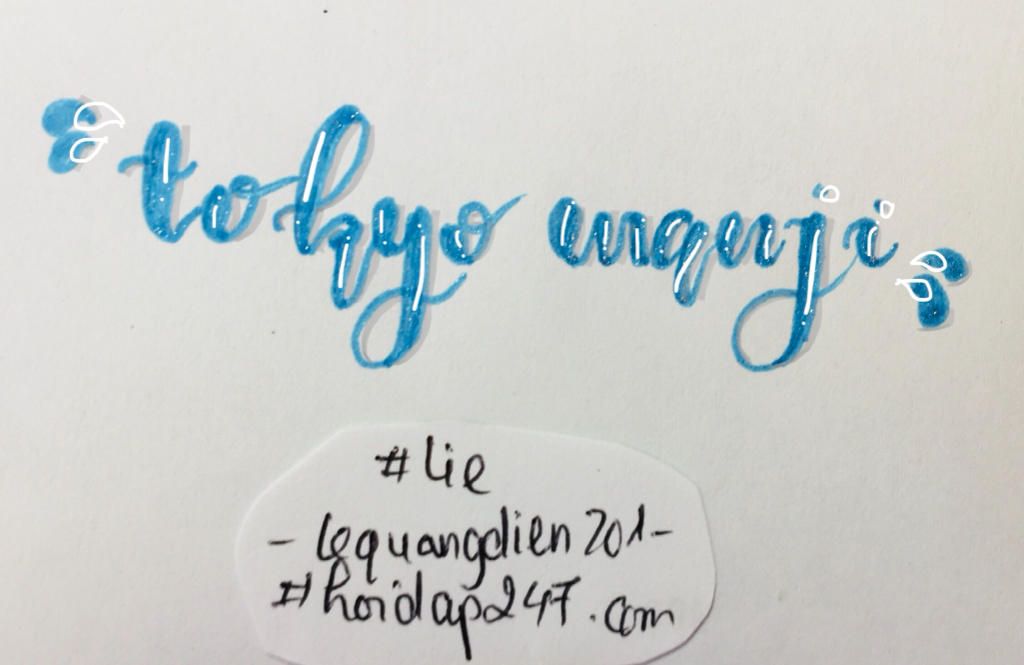 “tokyo manji”
#Lie
- lequangdien201-
#hoidap247.com